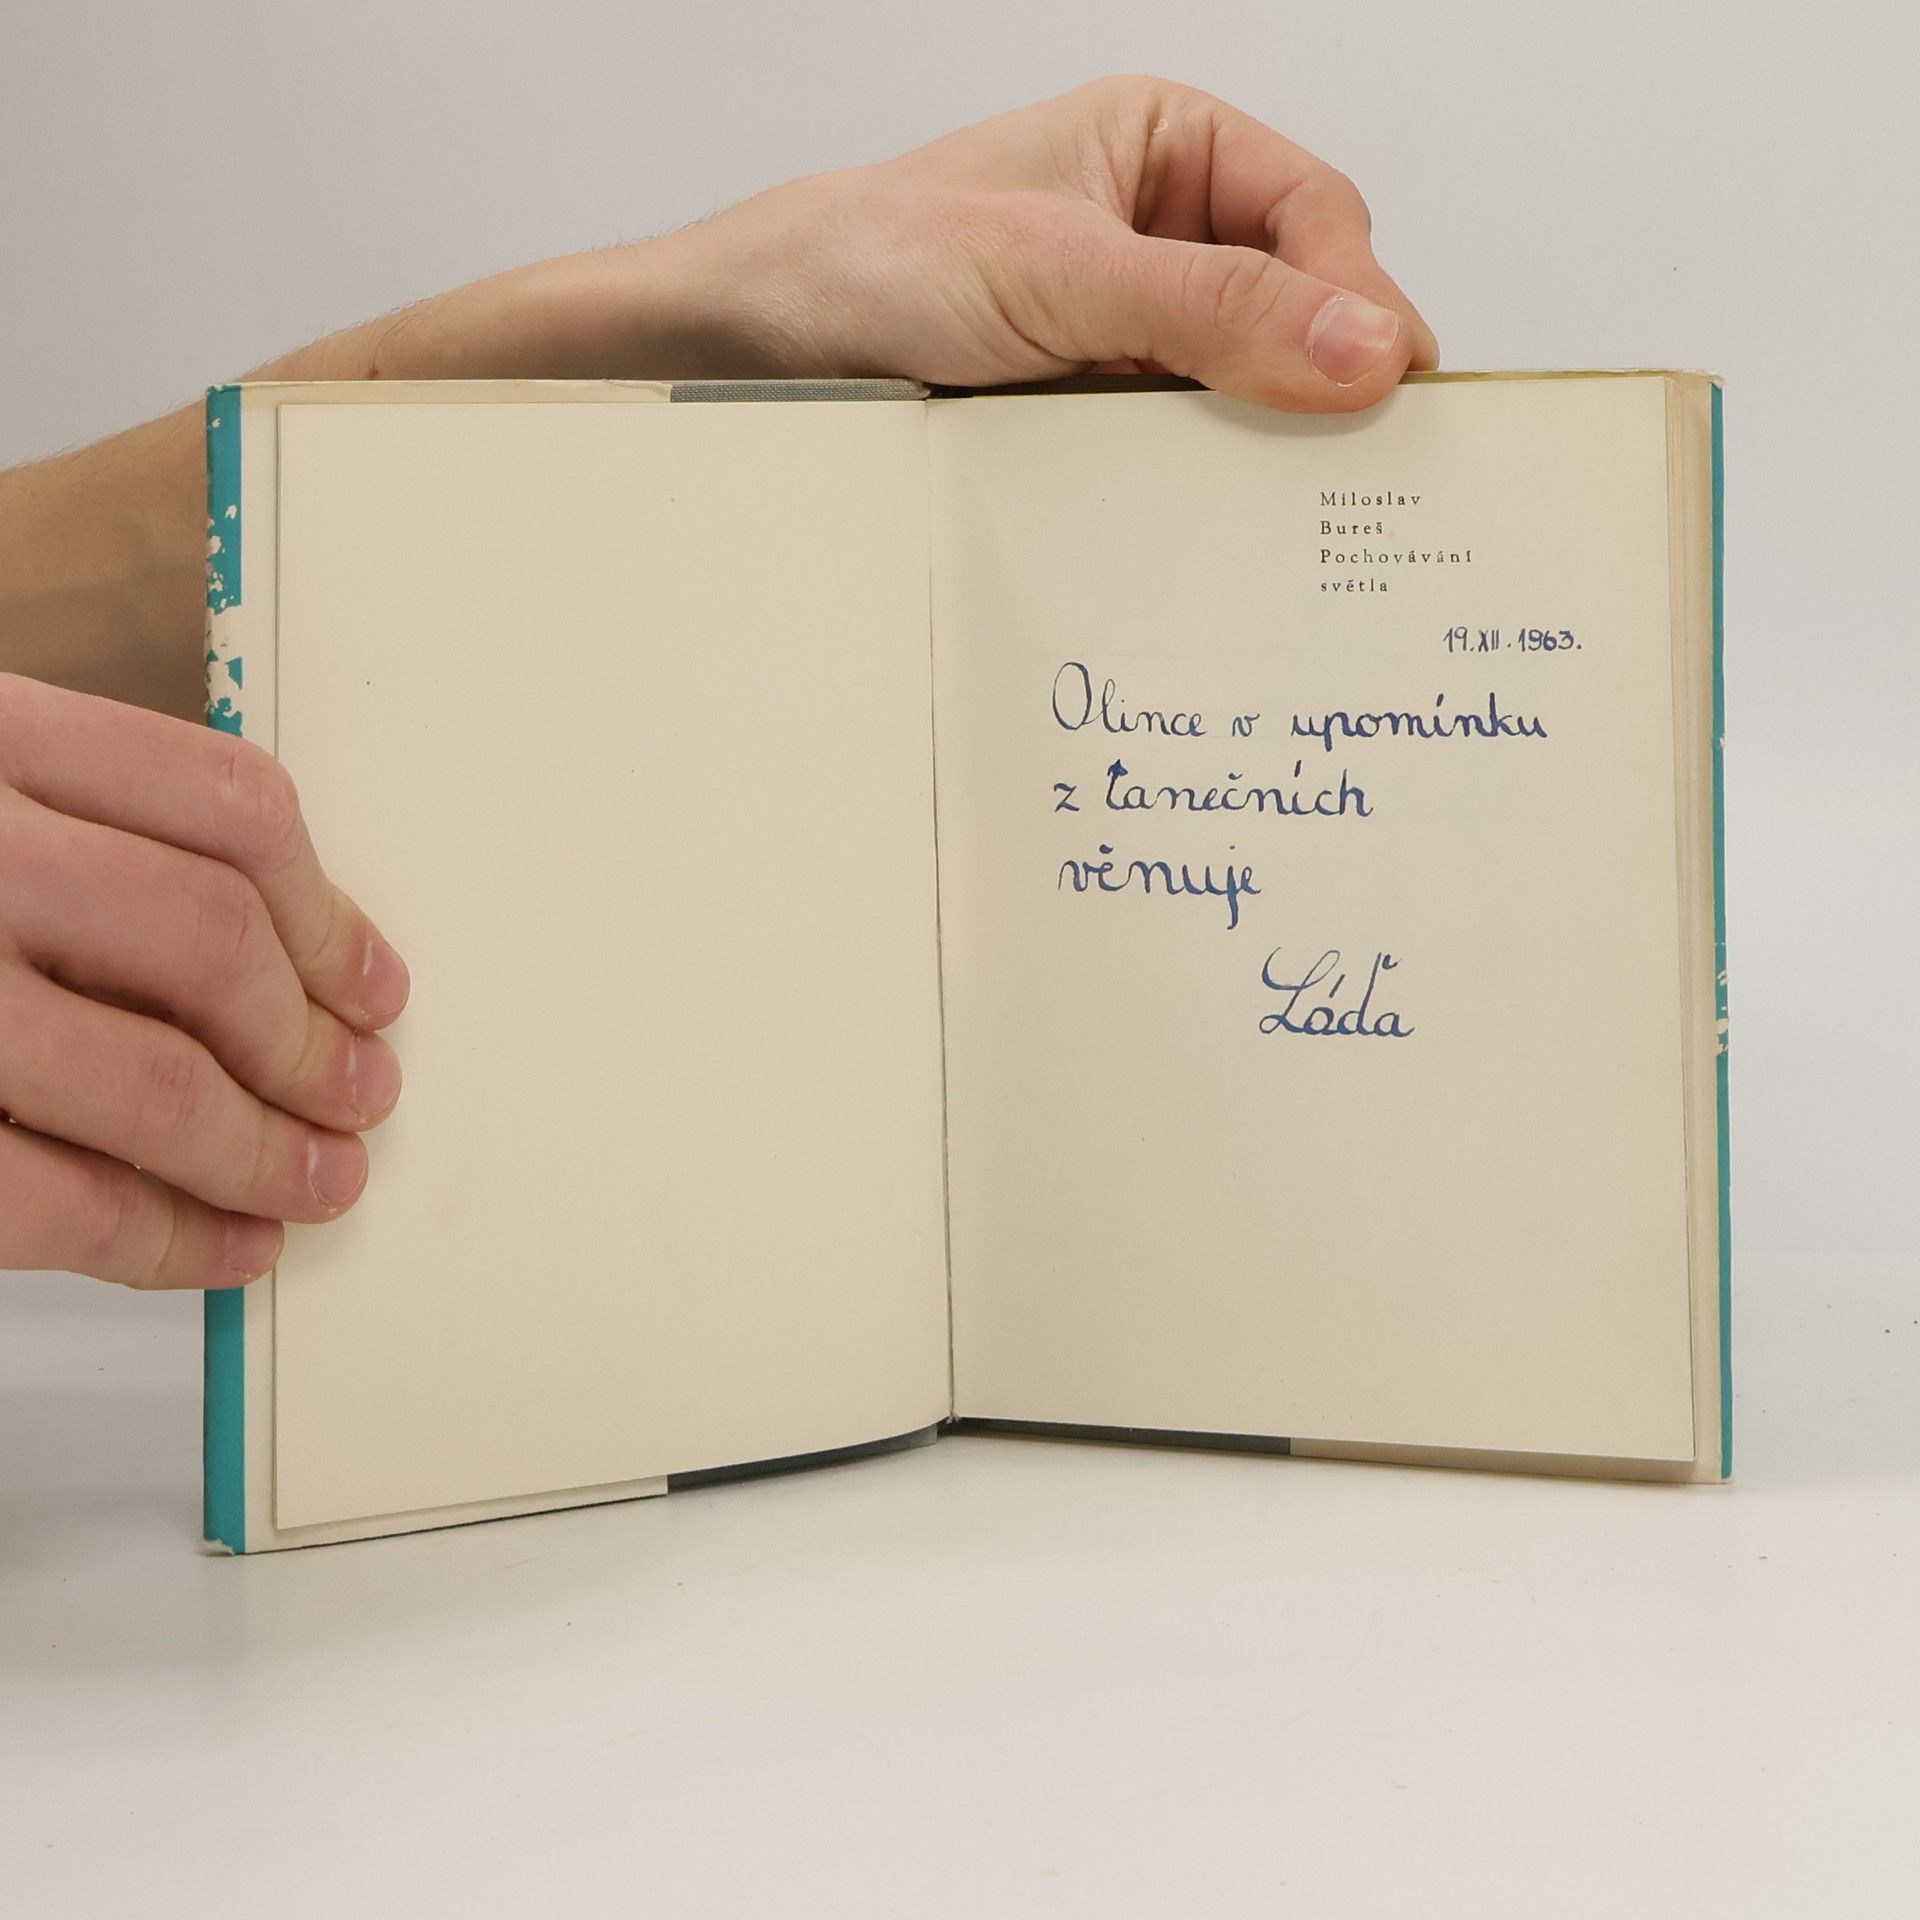 Miloslav
Bureš
Pochovávání
světla
19.XII.1963.
Olince v upomínku
z tanečních
věnuje
Láďa